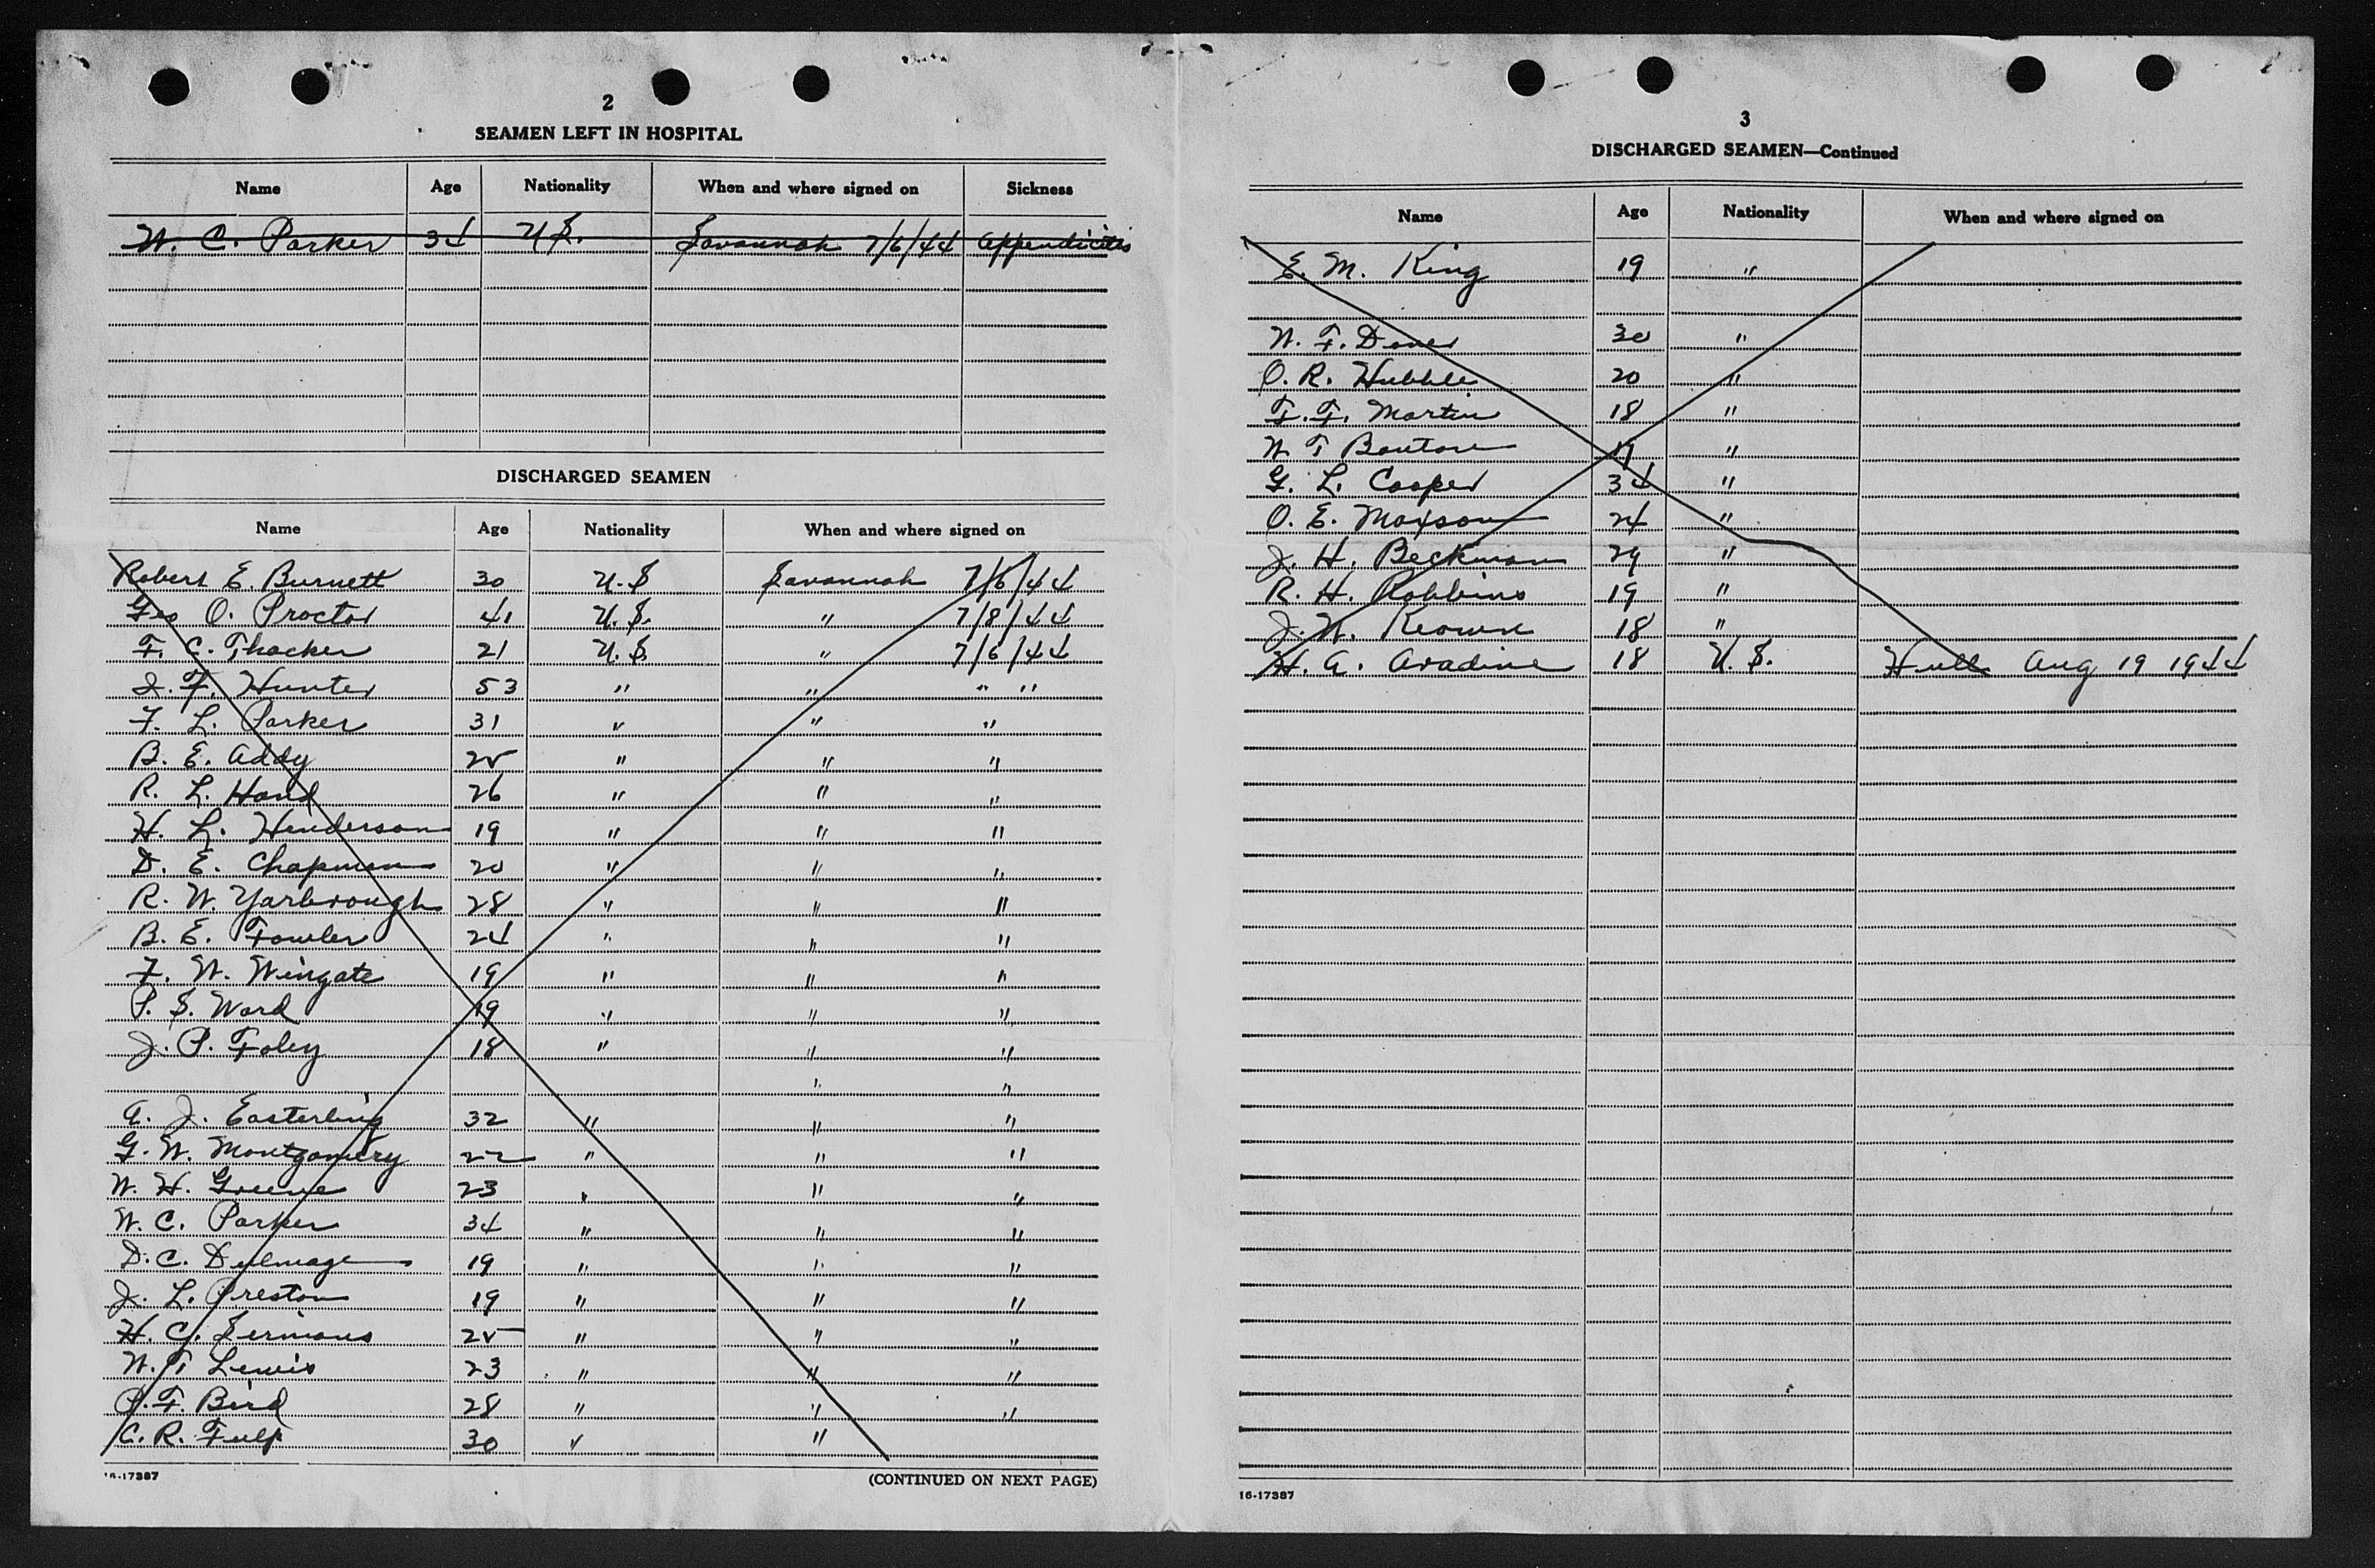 2
SEAMEN LEFT IN HOSPITAL
Name Age Nationality When and where signed on Sickness
W. C. Parker 34 U.S. Savannah 7/6/44 Appendicitis
DISCHARGED SEAMEN
Name Age Nationality When and where signed on
Robert E. Burnett 30 U.S Savannah 7/6/44
Geo O. Proctor 41 U.S. " 7/8/44
F. C. Thacker 21 U.S. " 7/6/44
J. F. Hunter 53 " " " "
F. L. Parker 31 " " "
B. E. Addy 25 " " "
R. L. Hand 26 " " "
H. L. Henderson 19 " " "
D. E. Chapman 20 " " "
R. W. Yarbrough 28 " " "
B. E. Fowler 24 " " "
F. W. Wingate 19 " " "
P. S. Ward 19 " " "
J. P. Foley 18 " " "
" "
A. J. Easterling 32 " " "
G. W. Montgomery 22 " " "
W. H. Greene 23 " " "
W. C. Parker 34 " " "
D. C. Dulmage 19 " " "
J. L. Preston 19 " " "
H. C. Sermons 25 " " "
W. T Lewis 23 " " "
P. F. Bird 28 " " "
C. R. Fulp 30 " "
16-17387
(CONTINUED ON NEXT PAGE)
3
DISCHARGED SEAMEN—Continued
Name Age Nationality When and where signed on
E. M. King 19 "
W. F. 30 "
O. R. Hubble 20 "
F. F. Martin 18 "
W T "
G. L. Cooper 34 "
O. E. Maxson 24 "
J. H. Beckman 29 "
R. H. Robbins 19 "
J. W. Keown 18 "
H. A. Aradine 18 U.S. Hull Aug 19 1944
16-17387